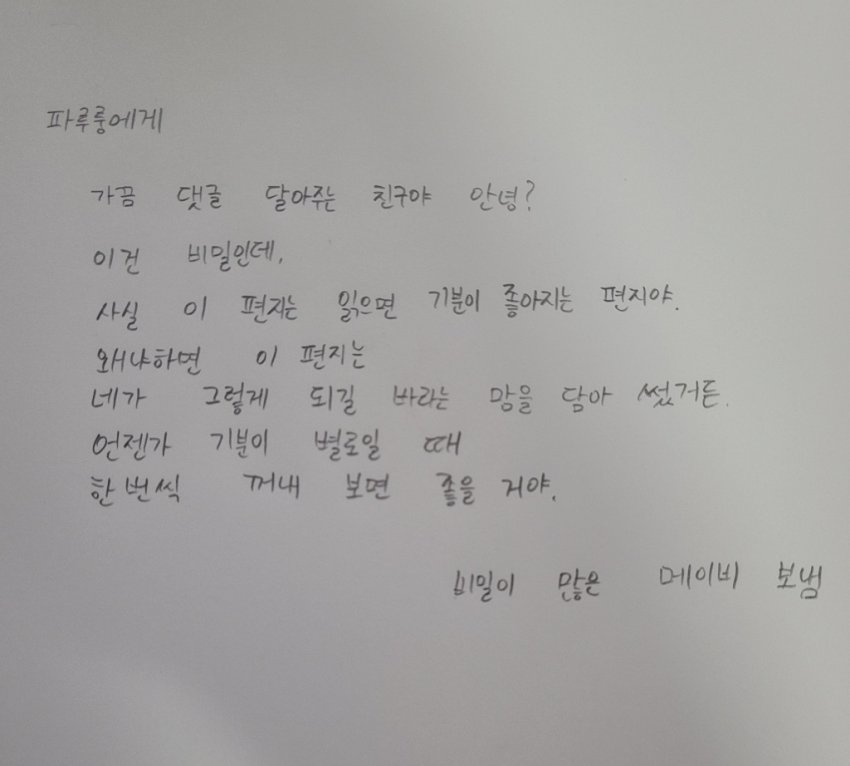 파루룽에게
가끔 댓글 달아주는 친구야 안녕?
이건 비밀인데,
사실 이 편지는 읽으면 기분이 좋아지는 편지야.
왜냐하면 이 편지는
네가 그렇게 되길 바라는 맘을 담아 썼거든.
언젠가 기분이 별로일 때
한 번씩 꺼내 보면 좋을 거야.
비밀이 많은 메이비 보냄